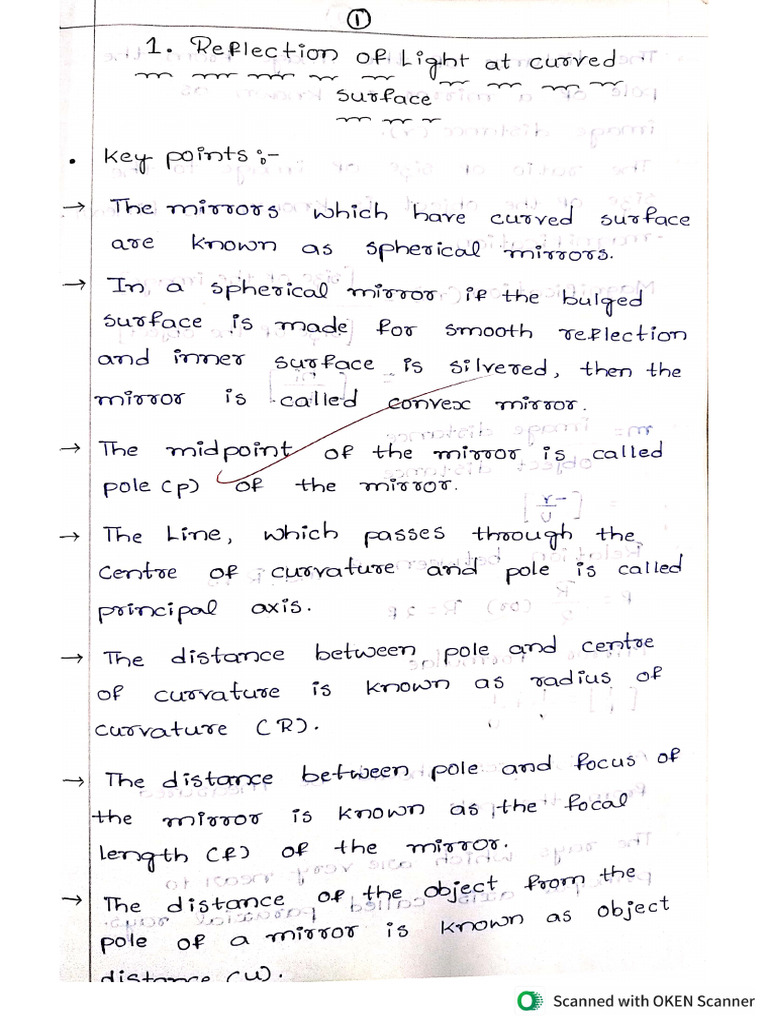 1
1. Reflection of Light at curved
surface
• key points :-
→ The mirrors which have curved surface
are known as spherical mirrors.
→ In a spherical mirror if the bulged
surface is made for smooth reflection
and inner surface is silvered, then the
mirror is called convex mirror.
→ The midpoint of the mirror is called
pole (p) of the mirror.
→ The Line, which passes through the
centre of curvature and pole is called
principal axis.
→ The distance between pole and centre
of curvature is known as radius of
curvature (R).
→ The distance between pole and focus of
the mirror is known as the focal
length (f) of the mirror.
→ The distance of the object from the
pole of a mirror is known as object
distance (u).
Scanned with OKEN Scanner